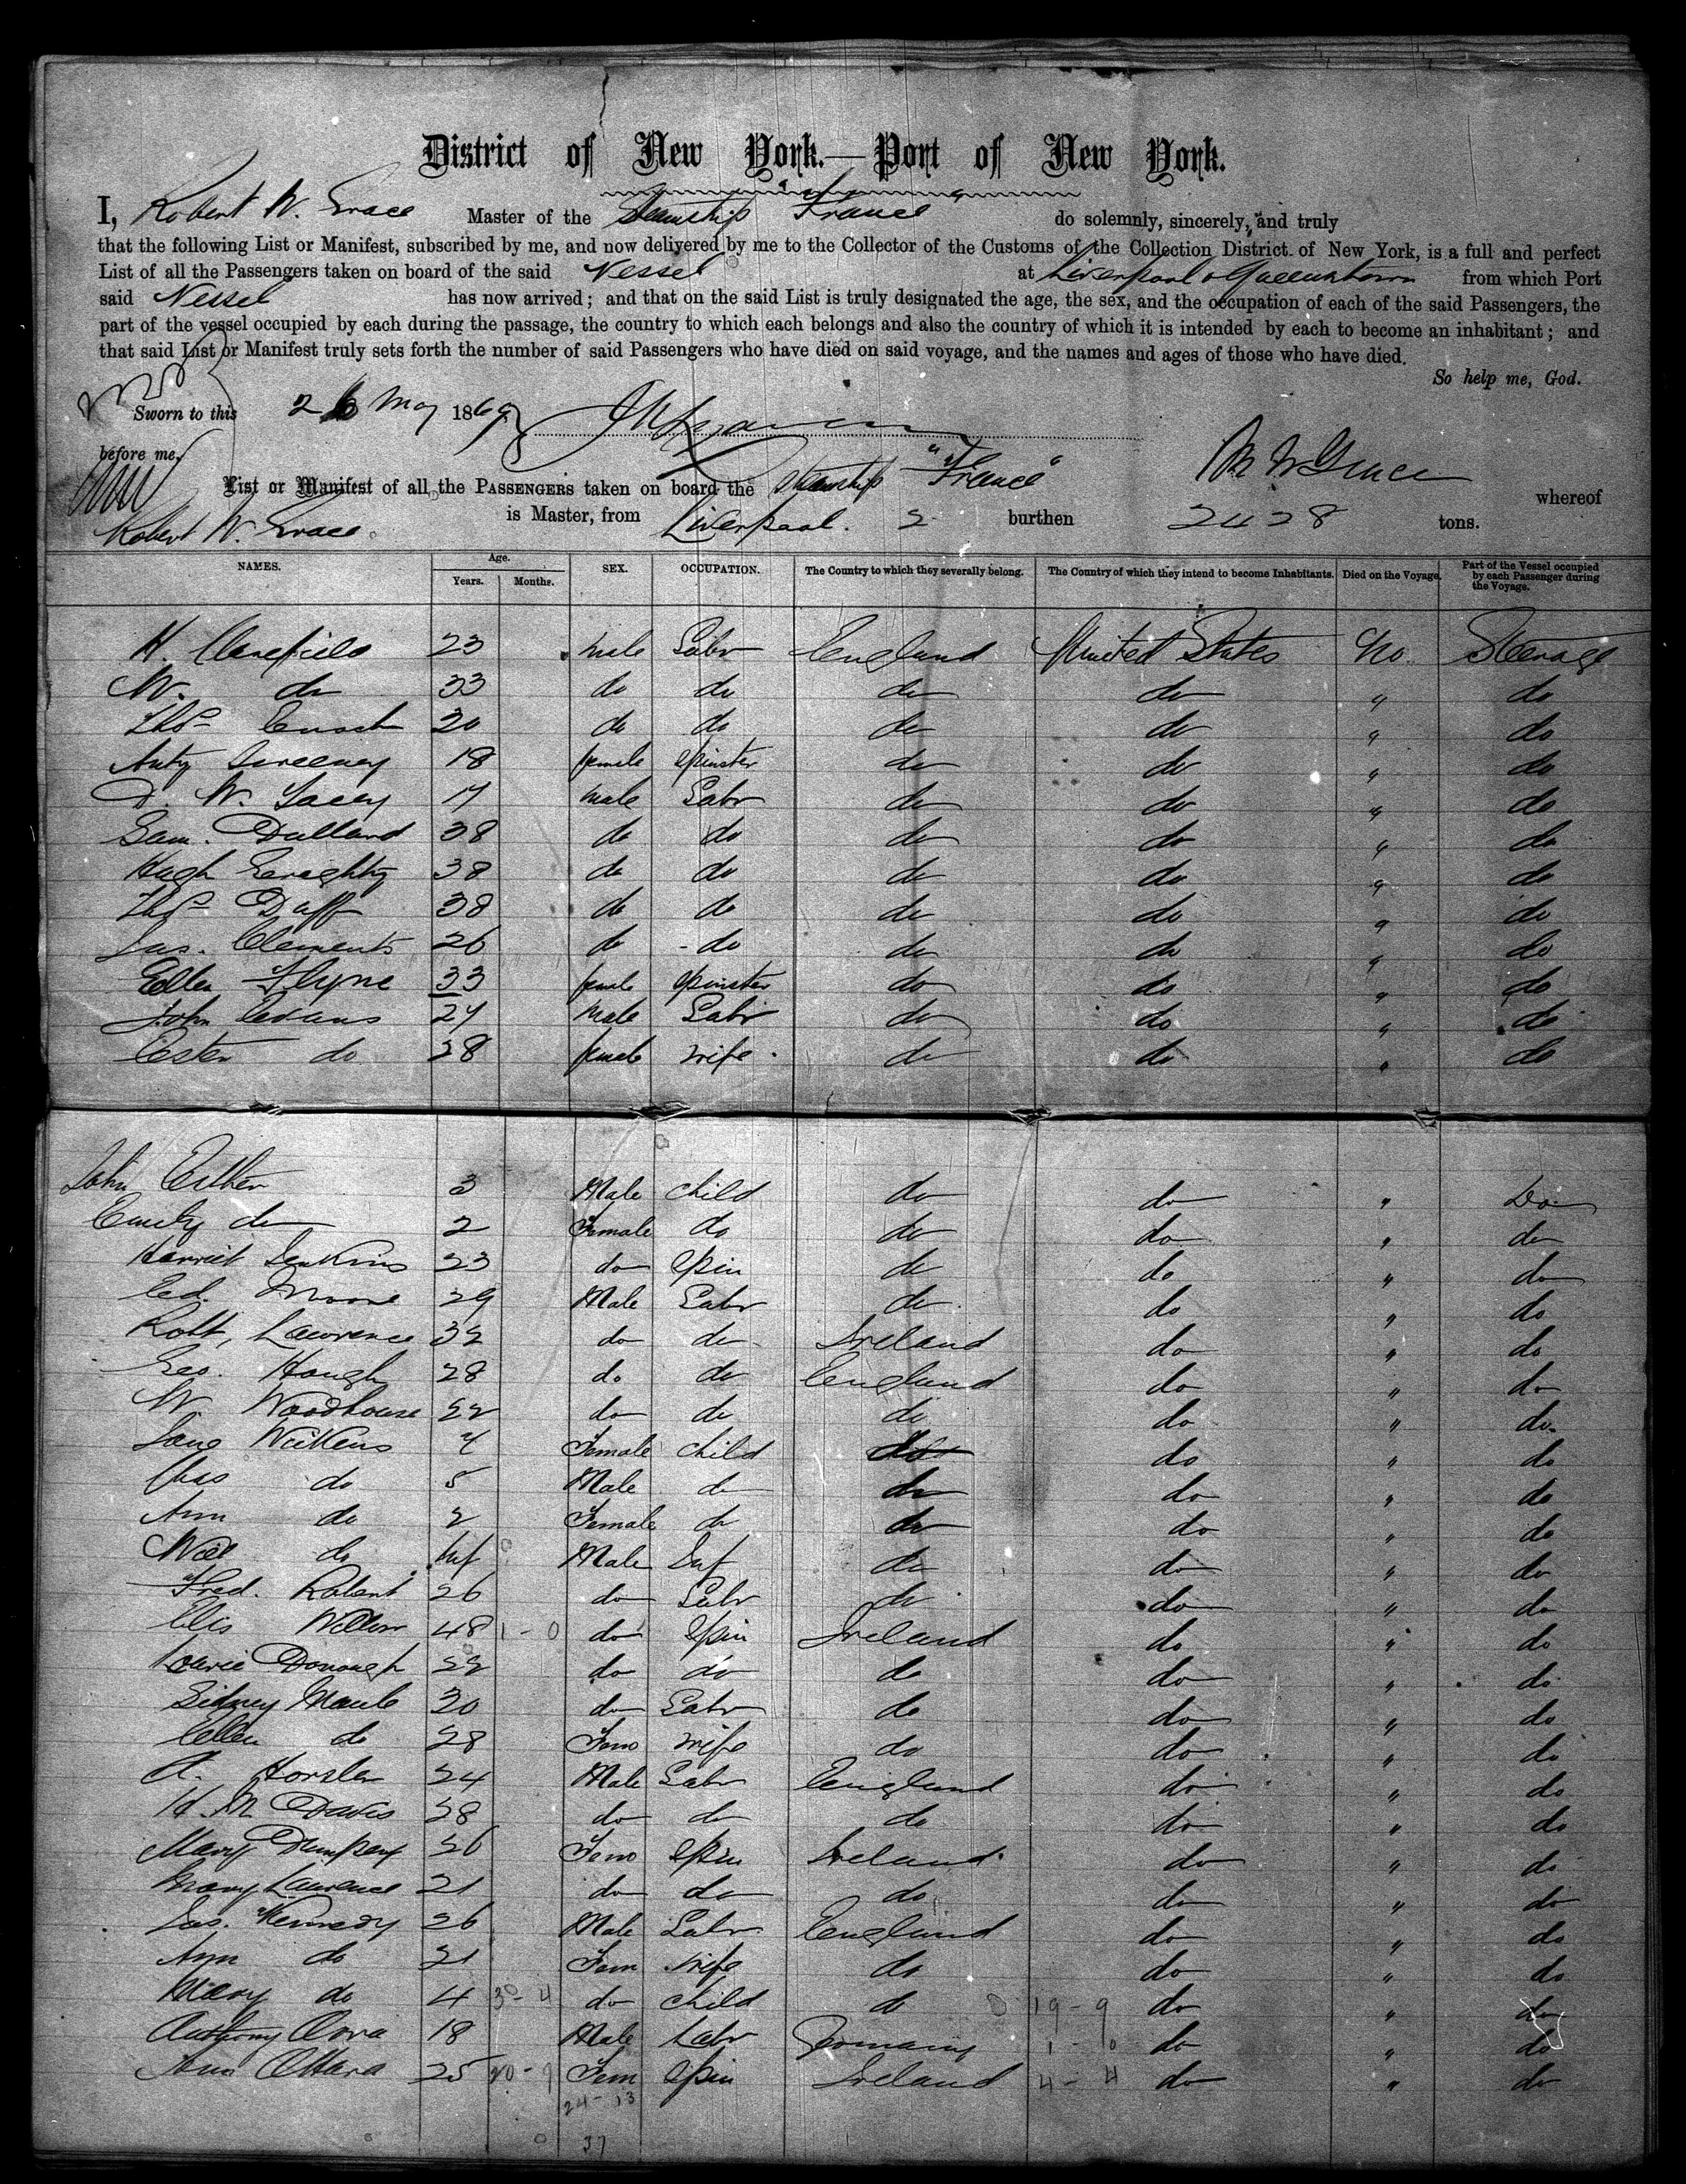 District of New York.—Port of New York.
I, Robert W. Grace Master of the Steamship "France" do solemnly, sincerely, and truly
that the following List or Manifest, subscribed by me, and now delivered by me to the Collector of the Customs of the Collection District of New York, is a full and perfect
List of all the Passengers taken on board of the said Vessel at Liverpool & Queenstown from which Port
said Vessel has now arrived; and that on the said List is truly designated the age, the sex, and the occupation of each of the said Passengers, the
part of the vessel occupied by each during the passage, the country to which each belongs and also the country of which it is intended by each to become an inhabitant; and
that said List or Manifest truly sets forth the number of said Passengers who have died on said voyage, and the names and ages of those who have died.
So help me, God.
Sworn to this 26 May 1869
before me,
R W Grace
List or Manifest of all the PASSENGERS taken on board the Steamship "France" whereof
Robert W. Grace is Master, from Liverpool. burthen 2428 tons.
NAMES. Age. Years. Months. SEX. OCCUPATION. The Country to which they severally belong. The Country of which they intend to become Inhabitants. Died on the Voyage. Part of the Vessel occupied by each Passenger during the Voyage.
H. 23 male Labr England United States No Steerage
W. do 33 do do do do " do
Thos 20 do do do do " do
Anty Sweeney 18 female Spinster do do " do
D. W. Lacey 17 male Labr do do " do
Sam. Dullard 38 do do do do " do
Hugh Geraghty 38 do do do do " do
Thos Duff 38 do do do do " do
Jas. Clements 26 do do do do " do
Ellen Flyne 33 female Spinster do do " do
John Evans 27 male Labr do do " do
Ester do 28 female wife do do " do
John 3 Male child do do " Do
Emily do 2 Female do do do " do
Harriet Jenkins 23 do Spin do do " do
Ed. Moore 29 Male Labr do do " do
Robt. Lawrence 32 do do Ireland do " do
Geo. Hough 28 do do England do " do
W Woodhouse 22 do do do do " do
Jane Watkens 7 Female child do do " do
Chas do 5 Male do do do " do
Ann do 2 Female do do do " do
Will do Inf Male Inf do do " do
Fred. Robent 26 do Labr do do " do
Elis 48 1 - 0 do Spin Ireland do " do
Donough 22 do do do do " do
Sidney Maule 30 do Labr do do " do
Ellen do 28 Fem wife do do " do
A. Horsler 24 Male Labr England do " do
H. M Davis 28 do do do do " do
Mary Dempsey 26 Fem Spin Ireland do " do
Mary Lawrence 21 do do do do " do
Jas. Kennedy 26 Male Labr England do " do
Ann do 21 Fem wife do do " do
Mary do 4 3 - 4 do child do 19 - 9 do " do
Anthony 18 Male Labr Germany 1 - 0 do " do
Ann OHara 25 20 - 9 Fem Spin Ireland 4 - 4 do " do
24 - 13
37